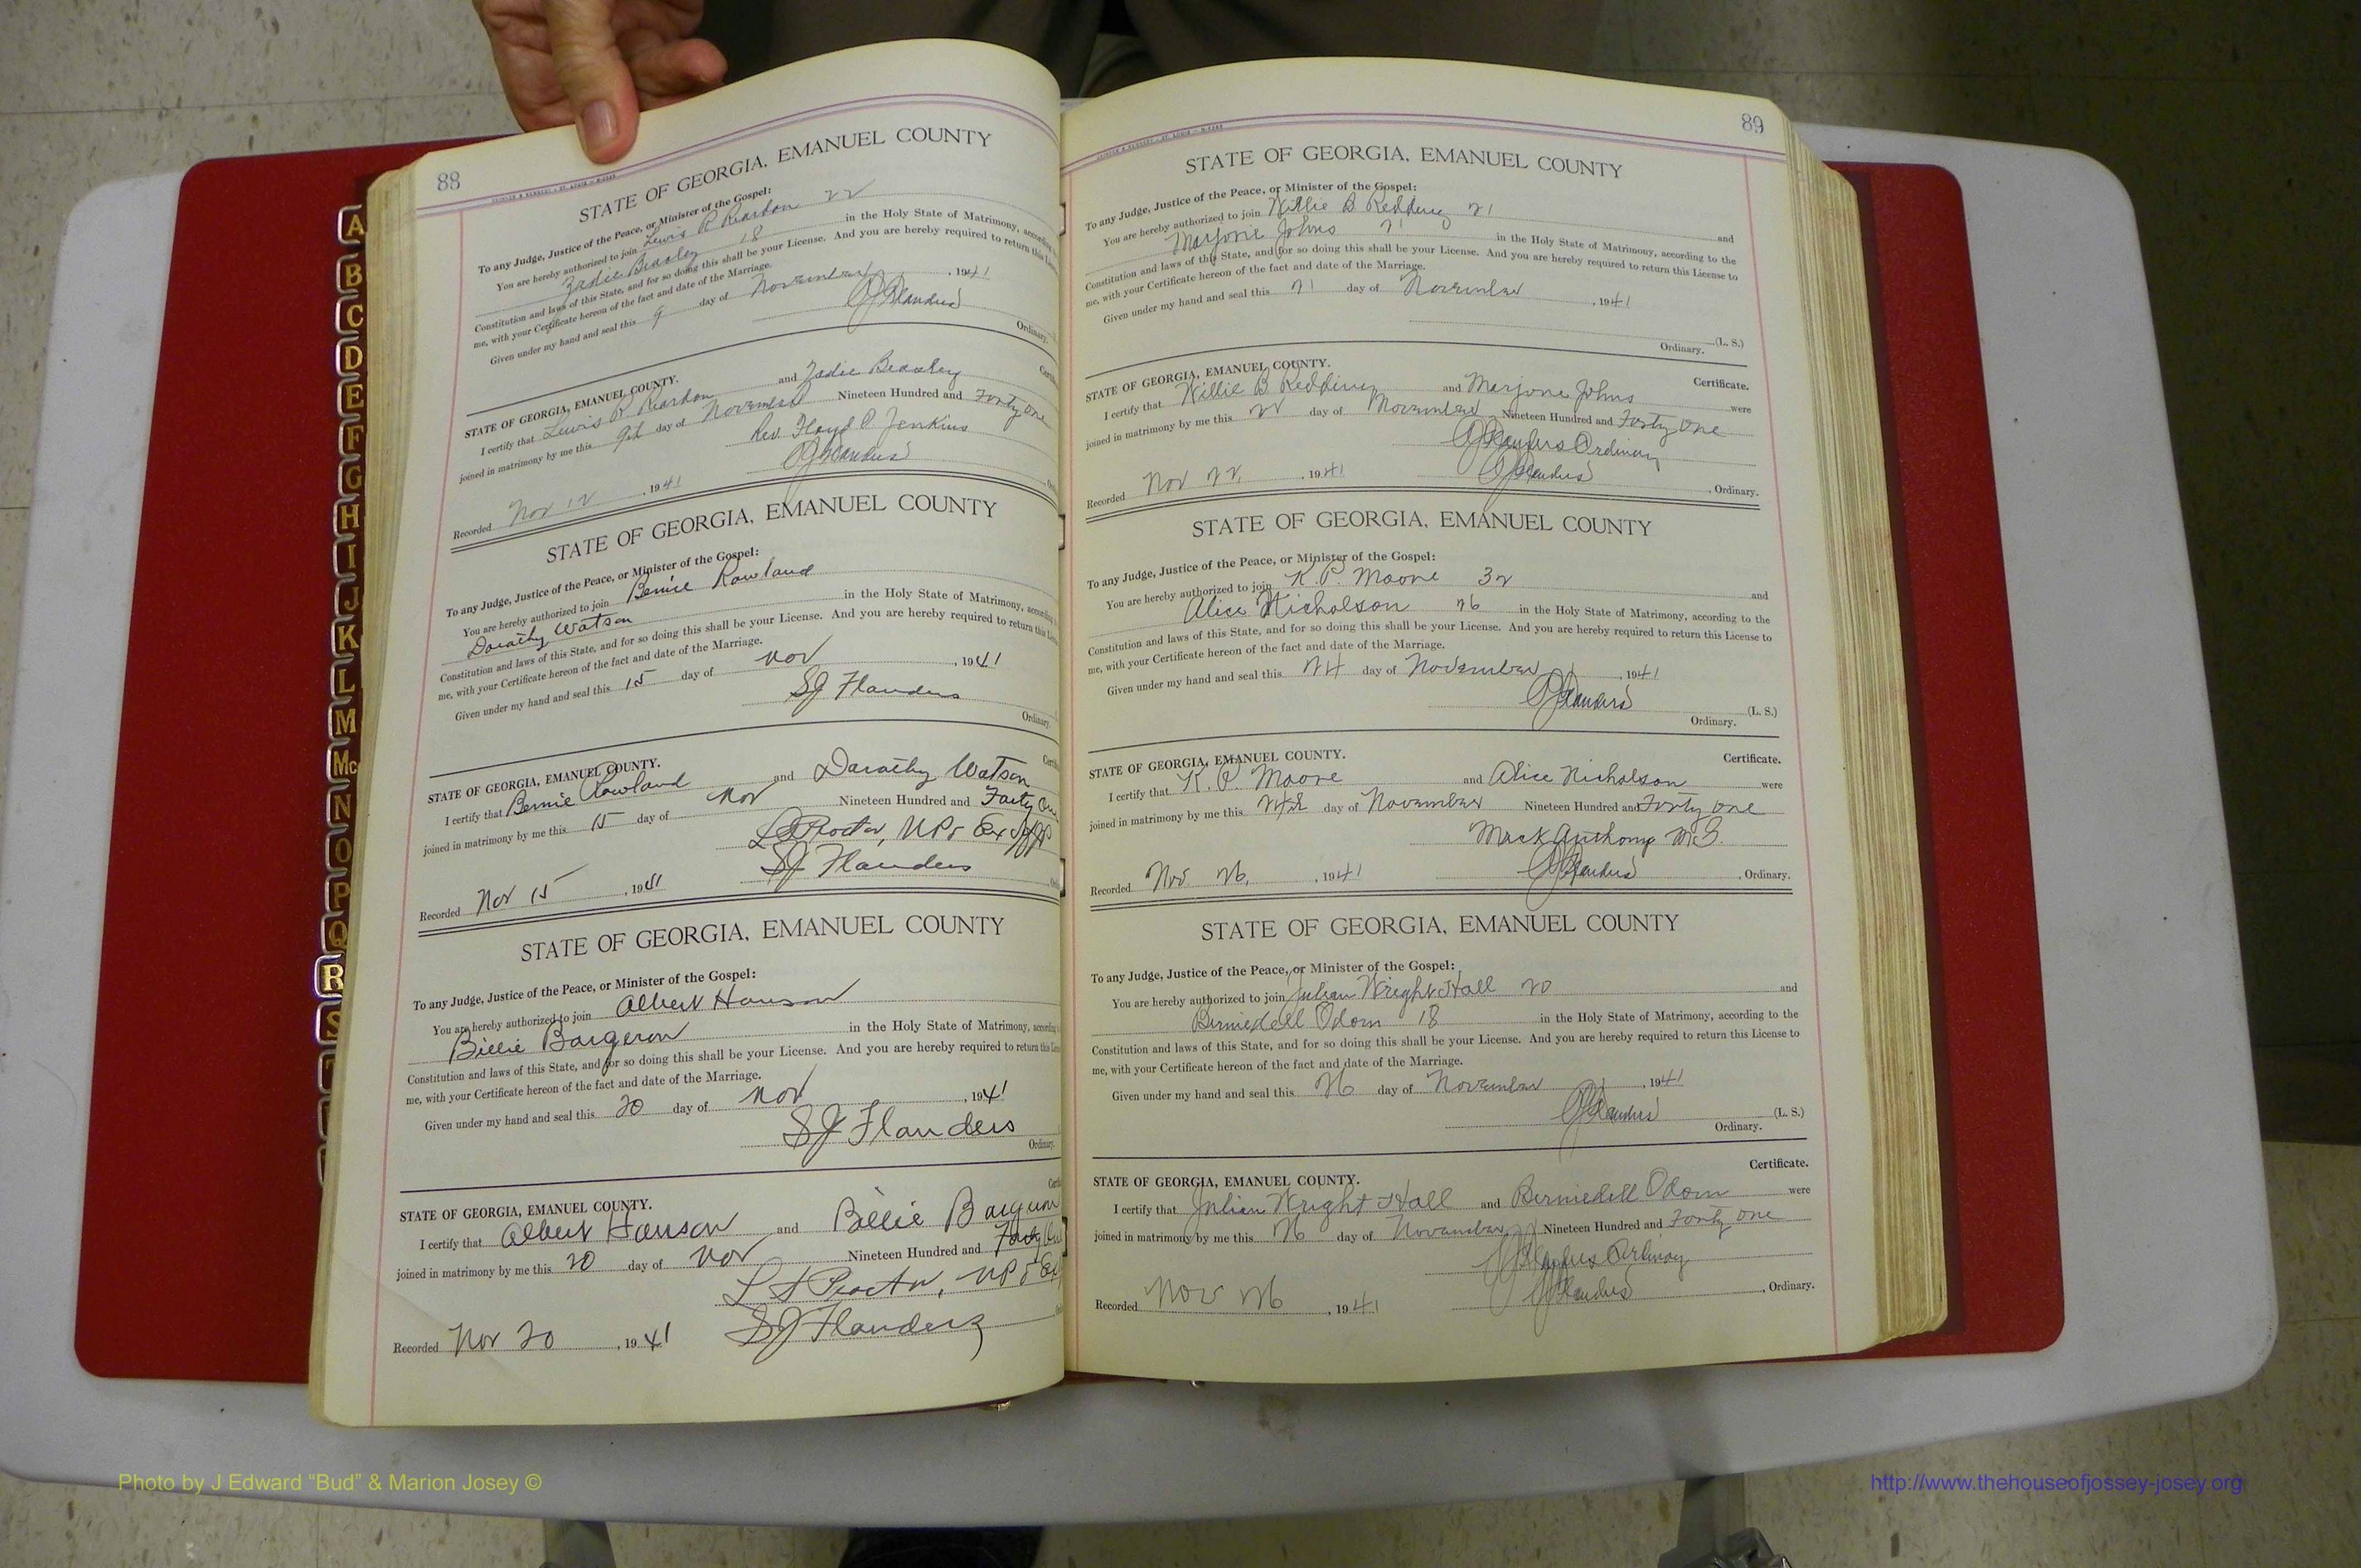 88
STATE OF GEORGIA, EMANUEL COUNTY
To any Judge, Justice of the Peace, or Minister of the Gospel:
You are hereby authorized to join Lewis R Reardon 22
Zadie Beasley 18 in the Holy State of Matrimony, according
Constitution and laws of this State, and for so doing this shall be your License. And you are hereby required to return this
me, with your Certificate hereon of the fact and date of the Marriage.
Given under my hand and seal this 9 day of November, 1941
Ordinary.
STATE OF GEORGIA, EMANUEL COUNTY.
I certify that Lewis R Reardon and Zadie Beasley
joined in matrimony by me this 9th day of November Nineteen Hundred and Forty One
Rev. Floyd O Jenkins
Recorded Nov 12, 1941
STATE OF GEORGIA, EMANUEL COUNTY
To any Judge, Justice of the Peace, or Minister of the Gospel:
You are hereby authorized to join Bernie Rowland
Dorothy Watson in the Holy State of Matrimony, according
Constitution and laws of this State, and for so doing this shall be your License. And you are hereby required to return this
me, with your Certificate hereon of the fact and date of the Marriage.
Given under my hand and seal this 15 day of Nov, 1941
SJ Flanders
Ordinary.
STATE OF GEORGIA, EMANUEL COUNTY.
I certify that Bernie Rowland and Dorothy Watson
joined in matrimony by me this 15 day of Nov Nineteen Hundred and Forty One
Proctor, NP & Ex
SJ Flanders
Recorded Nov 15, 1941
STATE OF GEORGIA, EMANUEL COUNTY
To any Judge, Justice of the Peace, or Minister of the Gospel:
You are hereby authorized to join Albert Hanson
Billie Bargeron in the Holy State of Matrimony, according
Constitution and laws of this State, and for so doing this shall be your License. And you are hereby required to return this
me, with your Certificate hereon of the fact and date of the Marriage.
Given under my hand and seal this 20 day of Nov, 1941
SJ Flanders
Ordinary.
STATE OF GEORGIA, EMANUEL COUNTY.
I certify that Albert Hanson and Billie Bargeron
joined in matrimony by me this 20 day of Nov Nineteen Hundred and Forty
Proctor, NP & Ex
SJ Flanders
Recorded Nov 20, 1941
A
B
C
D
E
F
G
H
I
J
K
L
M
Mc
N
O
P
Q
R
S
89
STATE OF GEORGIA, EMANUEL COUNTY
To any Judge, Justice of the Peace, or Minister of the Gospel:
You are hereby authorized to join Willie B Redding 21 and
Marjorie Johns 21 in the Holy State of Matrimony, according to the
Constitution and laws of this State, and for so doing this shall be your License. And you are hereby required to return this License to
me, with your Certificate hereon of the fact and date of the Marriage.
Given under my hand and seal this 21 day of November, 1941
(L. S.)
Ordinary.
STATE OF GEORGIA, EMANUEL COUNTY. Certificate.
I certify that Willie B Redding and Marjorie Johns were
joined in matrimony by me this 22 day of November Nineteen Hundred and Forty One
Flanders Ordinary
Recorded Nov 22, 1941 Flanders, Ordinary.
STATE OF GEORGIA, EMANUEL COUNTY
To any Judge, Justice of the Peace, or Minister of the Gospel:
You are hereby authorized to join K. P. Moore 32 and
Alice Nicholson 26 in the Holy State of Matrimony, according to the
Constitution and laws of this State, and for so doing this shall be your License. And you are hereby required to return this License to
me, with your Certificate hereon of the fact and date of the Marriage.
Given under my hand and seal this 24 day of November, 1941
Flanders (L. S.)
Ordinary.
STATE OF GEORGIA, EMANUEL COUNTY. Certificate.
I certify that K. P. Moore and Alice Nicholson were
joined in matrimony by me this 24th day of November Nineteen Hundred and Forty One
Mack Anthony M.G.
Recorded Nov 26, 1941 Flanders, Ordinary.
STATE OF GEORGIA, EMANUEL COUNTY
To any Judge, Justice of the Peace, or Minister of the Gospel:
You are hereby authorized to join Julian Wright Hall 20 and
Berniedell Odom 18 in the Holy State of Matrimony, according to the
Constitution and laws of this State, and for so doing this shall be your License. And you are hereby required to return this License to
me, with your Certificate hereon of the fact and date of the Marriage.
Given under my hand and seal this 26 day of November, 1941
Flanders (L. S.)
Ordinary.
STATE OF GEORGIA, EMANUEL COUNTY. Certificate.
I certify that Julian Wright Hall and Berniedell Odom were
joined in matrimony by me this 26 day of November Nineteen Hundred and Forty One
Flanders Ordinary
Recorded Nov 26, 1941 Flanders, Ordinary.
Photo by J Edward “Bud” & Marion Josey ©
http://www.thehouseofjossey-josey.org